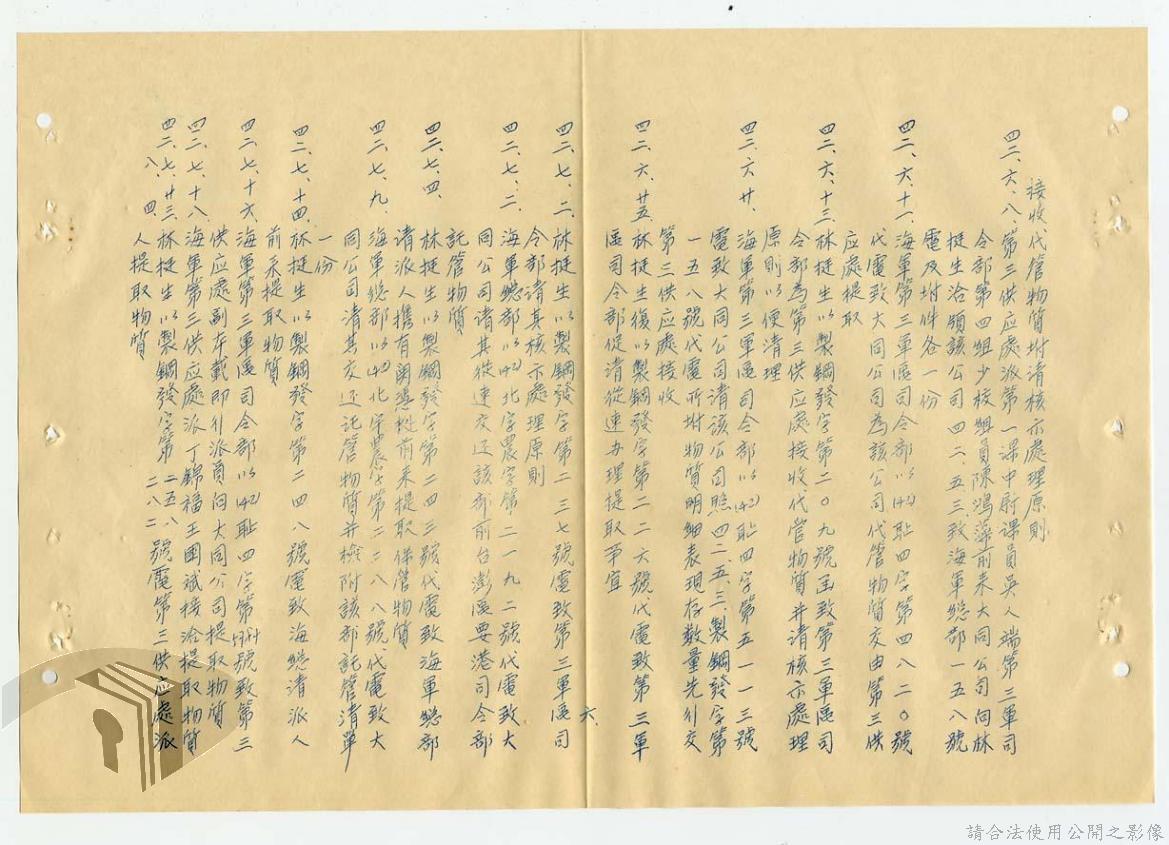 接收代管物質坿清核示處理原則
四二、六、八、第三供应處派第一课中尉课員吳人端第三軍司
令部第四組少校組員陳鴻藻前来大同公司向林
挺生洽領該公司四二、五三致海軍總部一五八號
電及坿件各一份
四二、六、十一、海軍第三軍區司令部以(42)駈四字第四八二〇號
代電致大同公司為該公司代管物質交由第三供
应處提取
四二、六、十三、林挺生以製鋼發字第二〇九號函致第三軍區司
令部為第三供应處接收代管物質并请核示處理
原則以便清理
四二、六、廿、海軍第三軍區司令部以(42)駈四字第五一一三號
電致大同公司清該公司照四二、五、三、製鋼發字第
一五八號代電所坿物質明細表現存数量先行交
第三供应處接收
四二、六、廿五、林挺生復以製鋼發字第二二六號代電致第三軍
區司令部從清從速办理提取事宜
六、
四二、七、二、林挺生以製鋼發字第二三七號電致第三軍區司
令部请其核示處理原則
四二、七、二、海軍總部以(42)北字農字第二一九二號代電致大
同公司请其從速交还該部前台澎區要港司令部
託管物質
四二、七、四、林挺生以製鋼發字第二四三號代電致海軍總部
请派人携有関憑椒前来提取保管物質
四二、七、九、海軍總部以(42)北字農字第二二八八號代電致大
同公司清其交还託管物質并檢附該部託管清單
一份
四二、七、十四、林挺生以製鋼發字第二四八號電致海總清派人
前来提取物質
四二、七、十六、海軍第三軍區司令部以(42)駈四字第號致第三
供应處副本載即行派員向大同公司提取物質
四二、七、十八、海軍第三供应處派丁錦福王国斌接洽提取物質
四二、七、廿三、林挺生以製鋼發字第二五八號電第三供应處派
八、四、二八二
人提取物質
請合法使用公開之影像